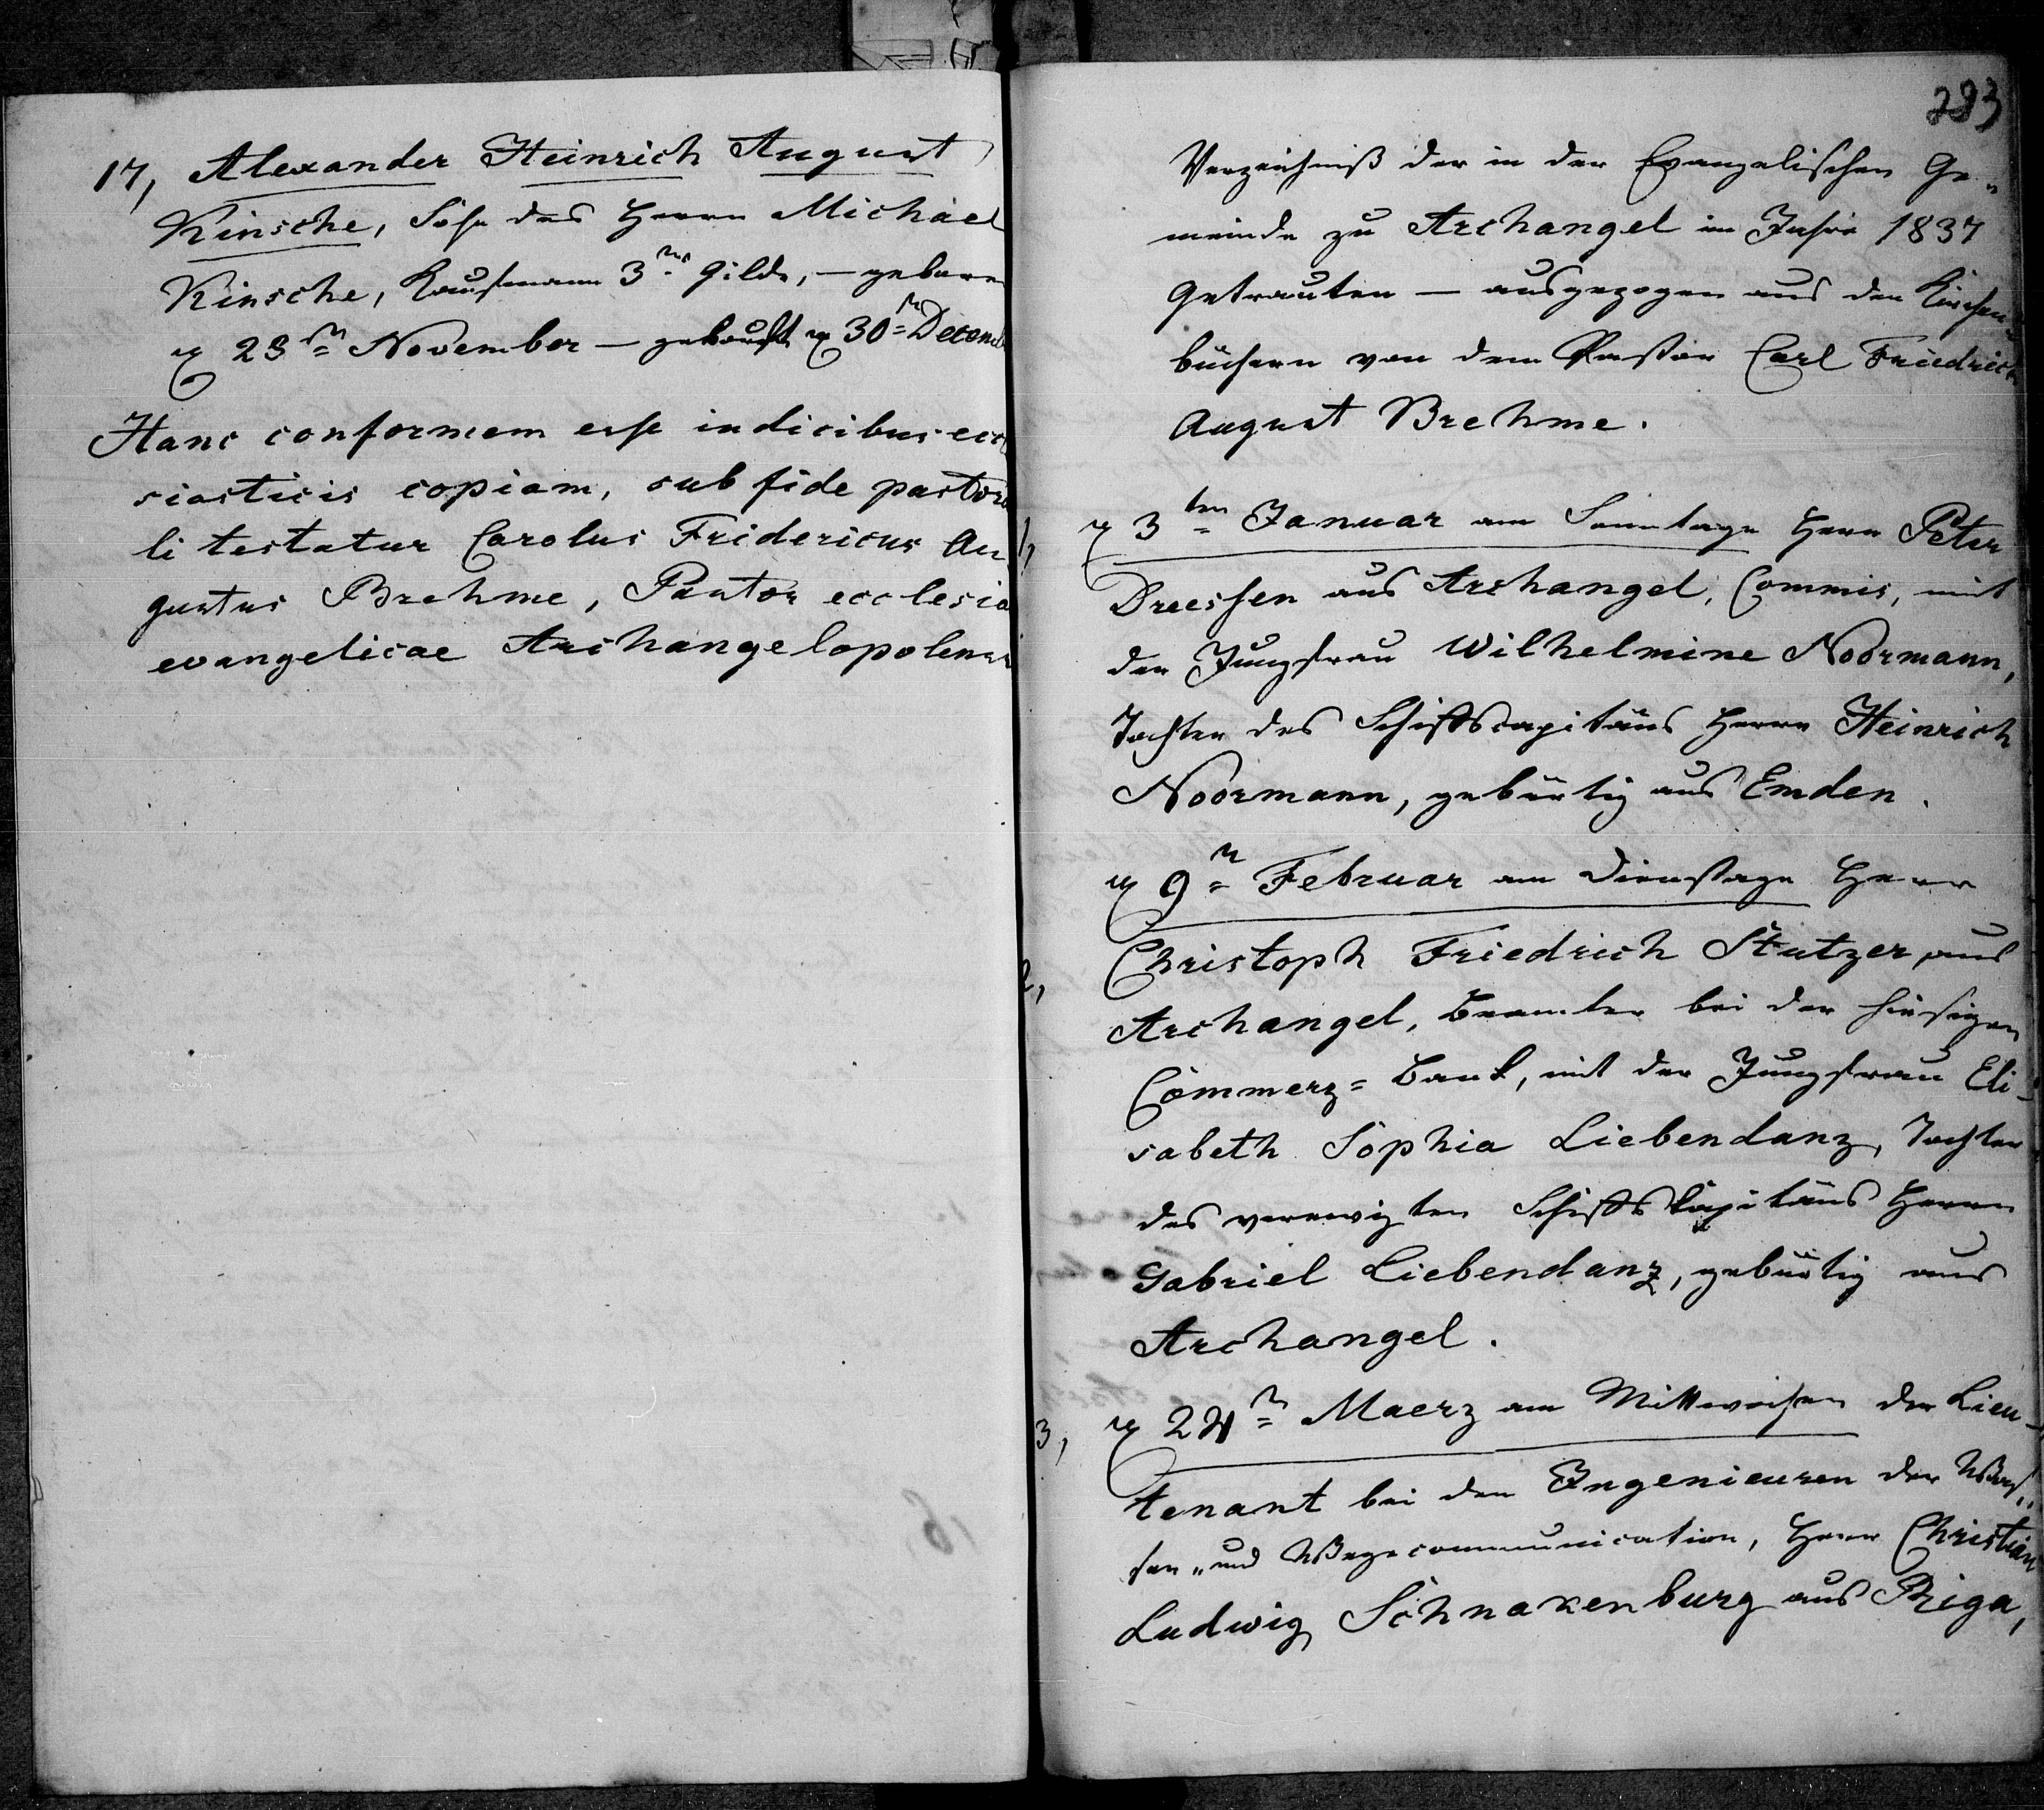 17, Alexander Heinrich August
Kinsche, Sohn des Herrn Michael
Kinsche, Kaufmann 3ter Gilde, — geboren
23n November — getauft 30n Decem
Hanc conformem esse indicibus eccl
siasticis copiam, sub fide pastora
li testatur Carolus Fridericus Au
gustus Brehme, Pastor ecclesia
evangelicae Archangelopolens
283
Verzeichniß der in der Evangelischen Ge„
meinde zu Archangel im Jahre 1837
Getrauten — ausgezogen aus den Kirchen„
büchern von dem Pastor Carl Friedrich
August Brehme.
1, 3ten Januar am Sonntage Herr Peter
Dreessen aus Archangel, Commis, mit
der Jungfrau Wilhelmine Noormann,
Tochter des Schiffscapitäns Herrn Heinrich
Noormann, gebürtig aus Emden.
9n Februar am Dienstage Herr
2, Christoph Friedrich Stutzer, aus
Archangel, Beamter bei der hiesigen
Commerz=Bank, mit der Jungfrau Eli-
sabeth Sophia Liebendanz, Tochter
des verewigten Schiffskapitäns Herrn
Gabriel Liebendanz, gebürtig aus
Archangel.
3, 24n Maerz am Mittwochen der Lieu-
tenant bei den Ingenieuren der Was„
ser„ und Wegecommunication, Herr Christian
Ludwig Schnakenburg aus Riga,